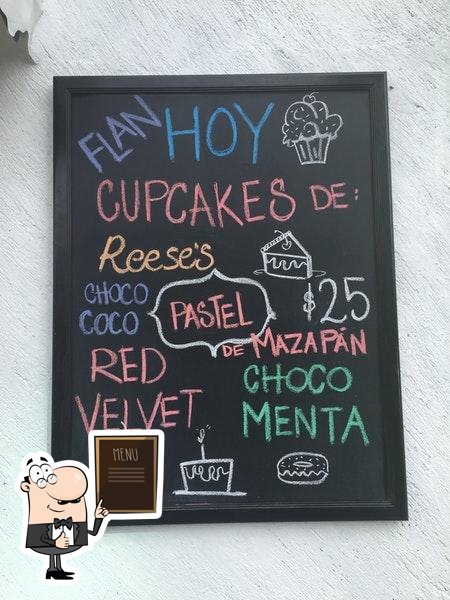 FLAN
HOY
CUPCAKES DE:
Reese's
CHOCO
COCO
PASTEL
DE MAZAPÁN
$25
RED
VELVET
CHOCO
MENTA
MENU